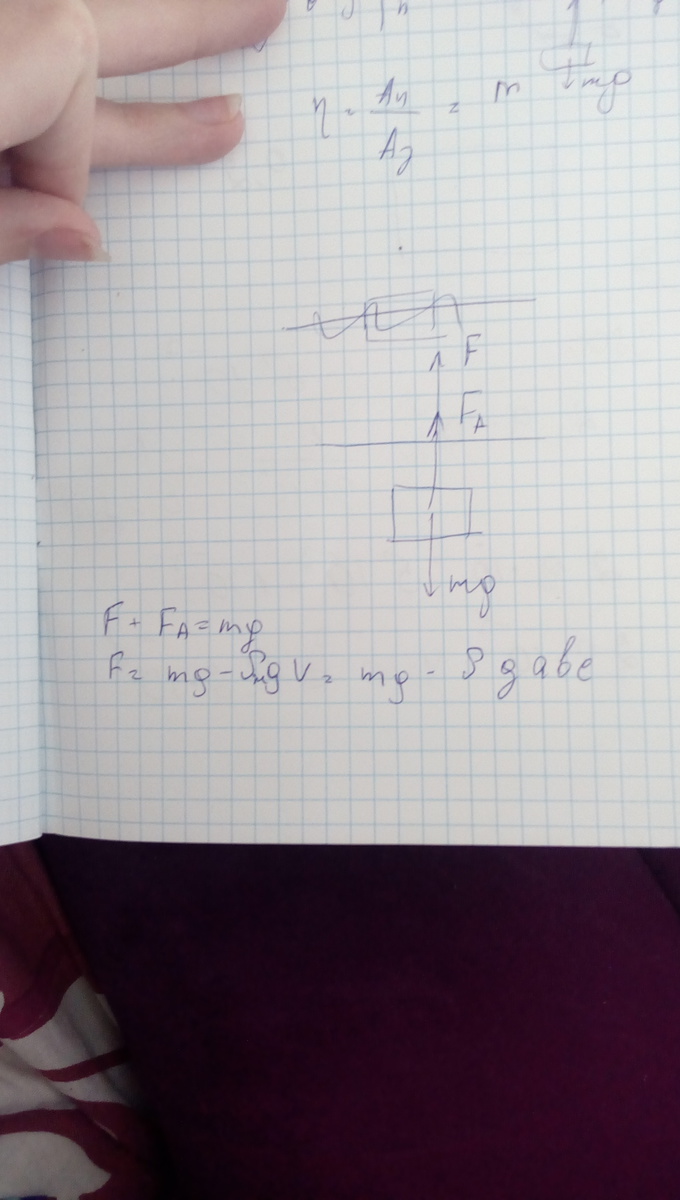 mg
η = Aп / Aз = m
F
FA
mg
F + FA = mg
F = mg - ρжg V = mg - ρ g a b c